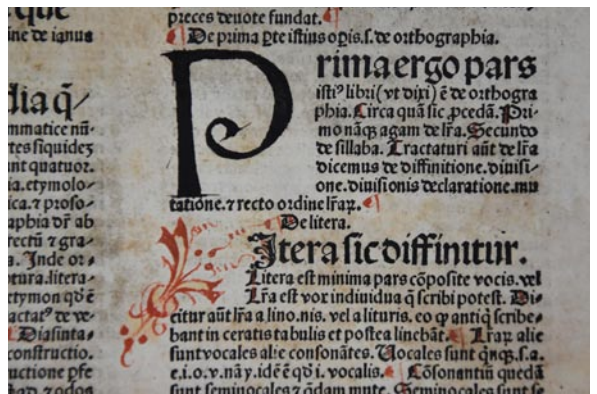 que
ine de ianua
dia q̃
mmatice nũ-
tes siquidẽ
nt quatuor.
ia.etymolo-
ica.⁊ proso-
aphia dr̃ ab
rectũ ⁊ gra-
. Inde or-
tura.litera-
etymon qđ ẽ
actat᷒ de ve-
Diasinta-
constructio.
uctione pfe
preces deuote fundat.
De prima ꝑte istius oꝑis.s.de orthographia.
Prima ergo pars
isti᷒ libri (vt dixi) ẽ de orthogra
phia. Circa quã sic ꝓcedã. Pri-
mo nãqꝫ agam de lr̃a. Secundo
de sillaba. Tractaturi aũt de lr̃a
dicemus de diffinitione.diuisi-
one.diuisionis declaratione.mu
tatione.⁊ recto ordine lr̃aꝝ.
De litera.
Itera sic diffinitur.
Litera est minima pars cõposite vocis.vel
Lr̃a est vox indiuidua q̃ scribi potest. Di-
citur aũt lr̃a a lino.nis. vel a lituris. eo ꝙ antiq̃ scribe-
bant in ceratis tabulis et postea linebãt. Lr̃aꝝ alie
sunt vocales alie consonãtes. Uocales sunt q̃nqꝫ.s.a.
e.i.o.v.nã y.idẽ ẽ qđ i. vocalis. Cõsonantiũ quedã
sunt seminocales ⁊ q̃dam mute. Seminocales sunt se